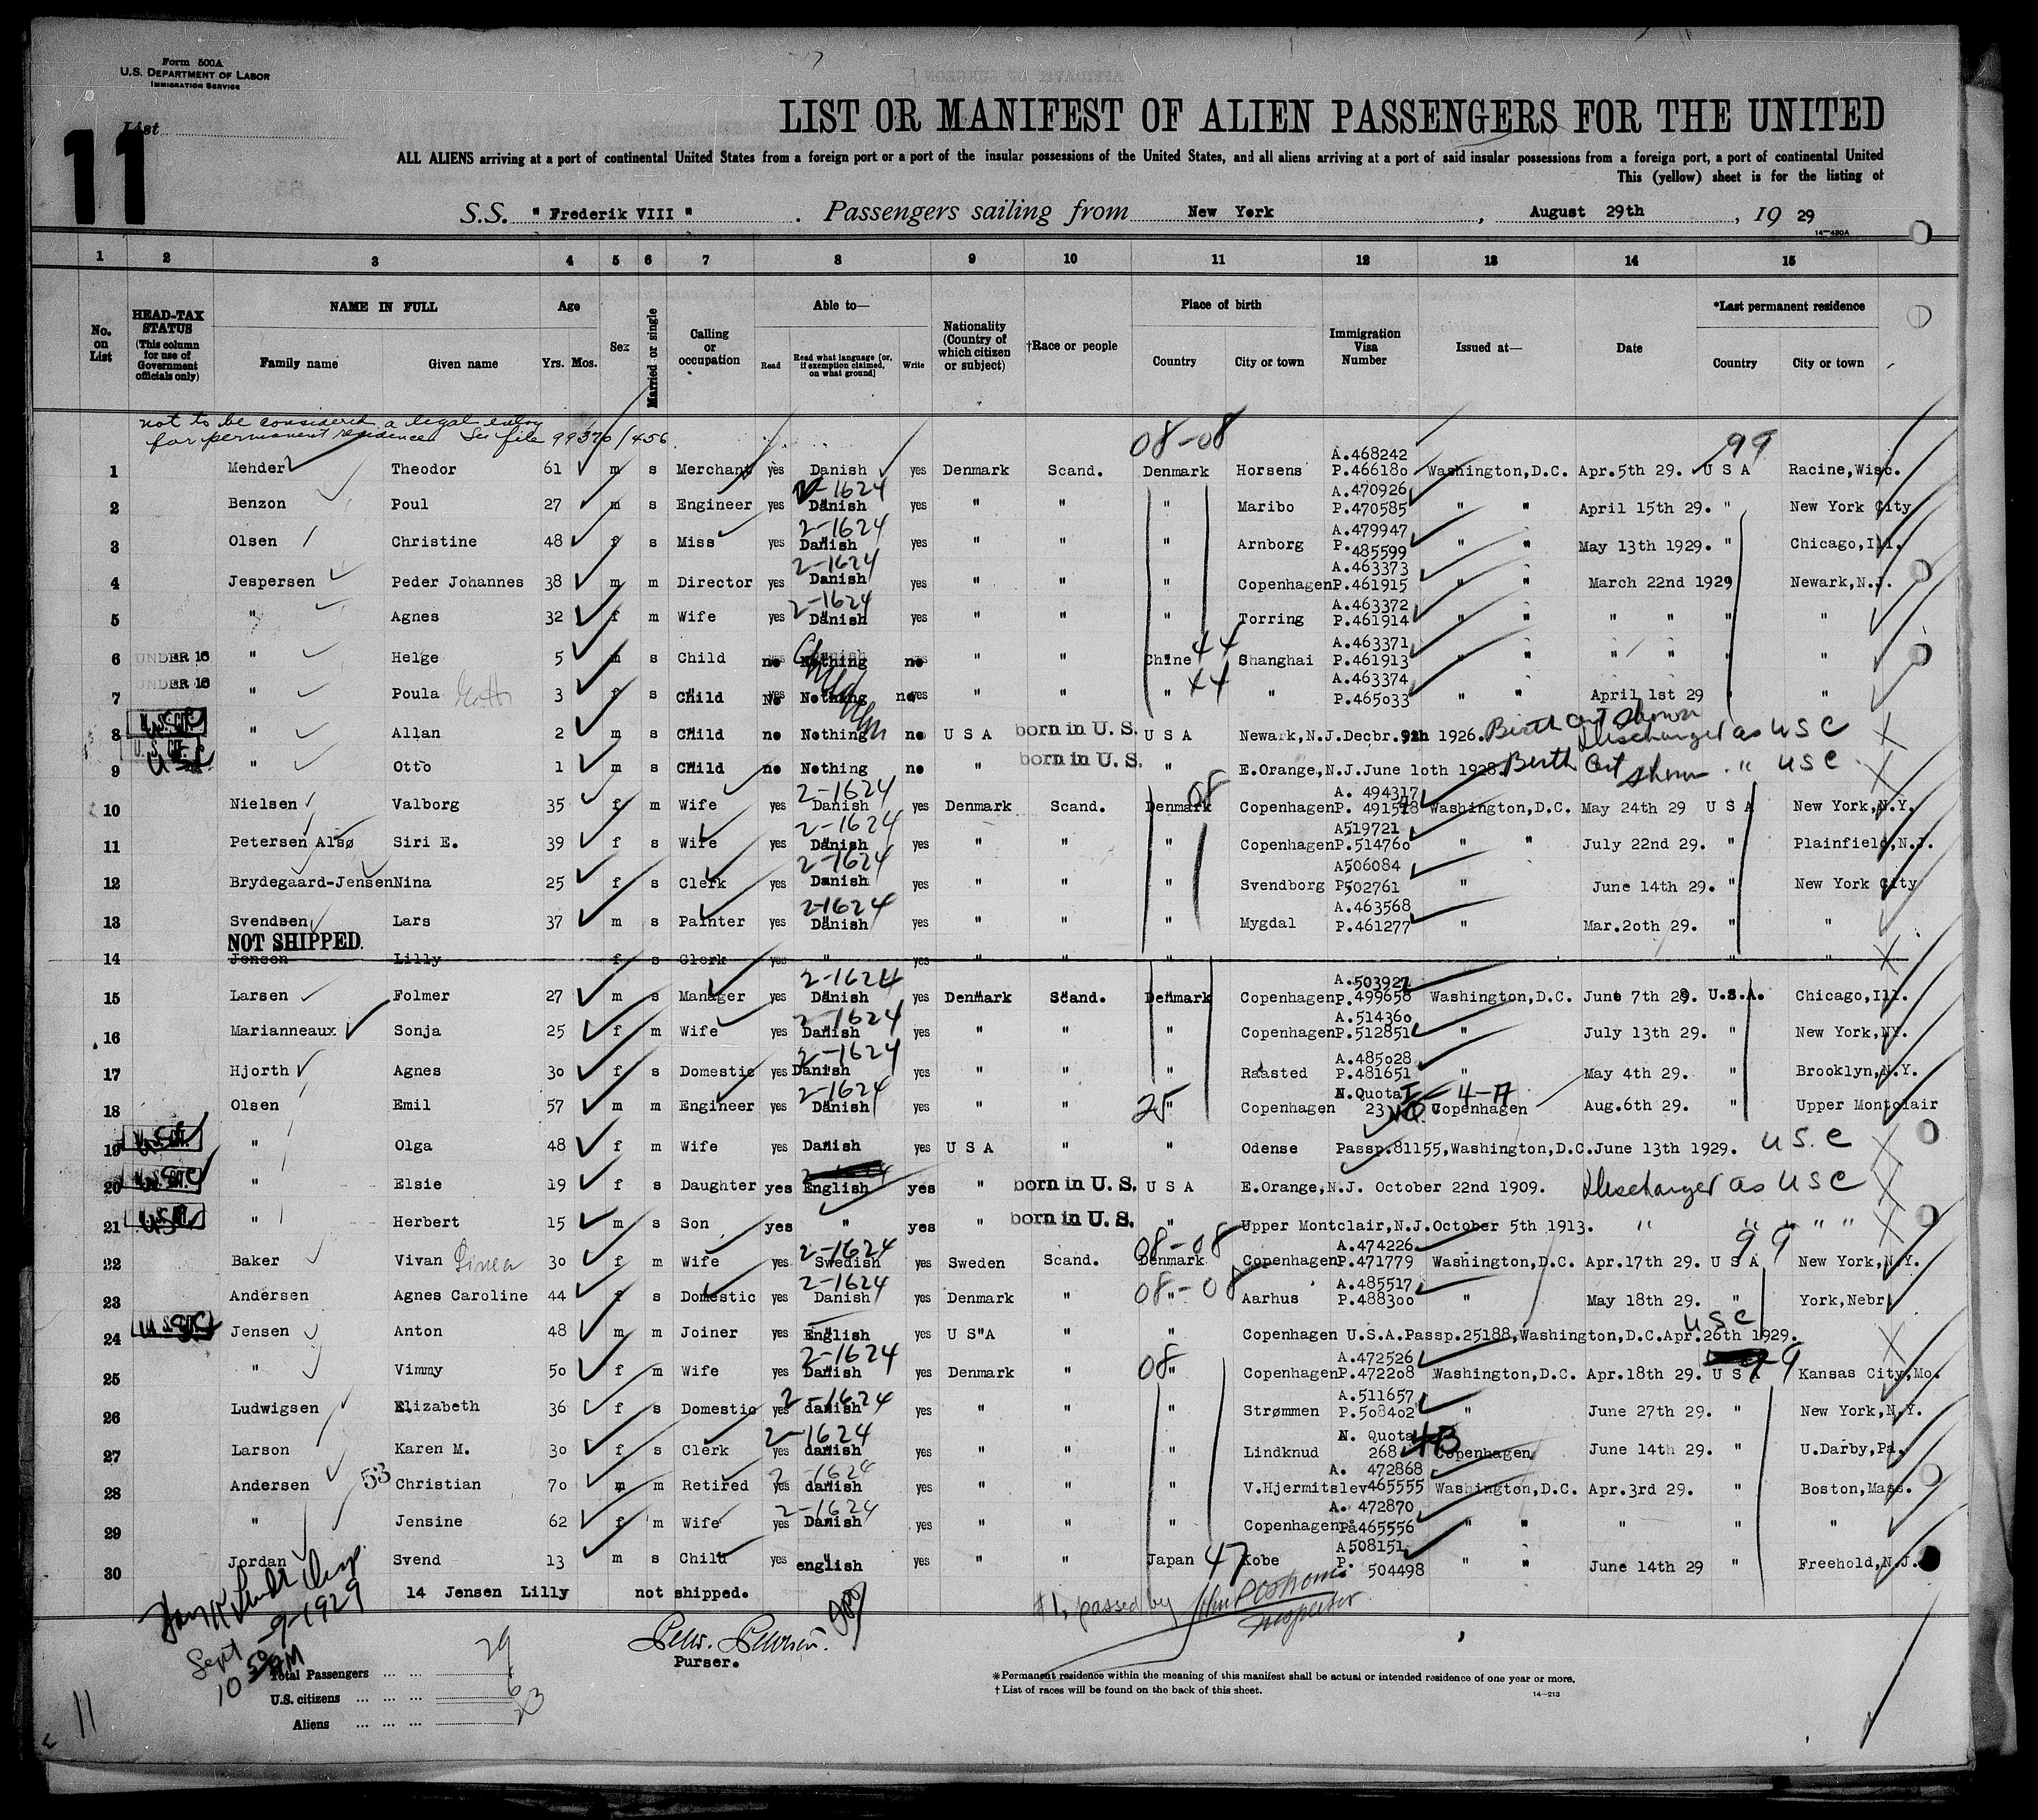 Form 500A
U.S. DEPARTMENT OF LABOR
IMMIGRATION SERVICE
List
11
LIST OR MANIFEST OF ALIEN PASSENGERS FOR THE UNITED
ALL ALIENS arriving at a port of continental United States from a foreign port or a port of the insular possessions of the United States, and all aliens arriving at a port of said insular possessions from a foreign port, a port of continental United
This (yellow) sheet is for the listing of
S.S. " Frederik VIII " . Passengers sailing from New York , August 29th , 19 29
14—430A
1 2 3 4 5 6 7 8 9 10 11 12 13 14 15
No. on List
HEAD-TAX STATUS (This column for use of Government officials only)
NAME IN FULL
Family name Given name
Age Yrs. Mos.
Sex
Married or single
Calling or occupation
Able to—
Read Read what language [or, if exemption claimed, on what ground] Write
Nationality (Country of which citizen or subject)
†Race or people
Place of birth
Country City or town
Immigration Visa Number
Issued at—
Date
*Last permanent residence
Country City or town
not to be considered a legal entry
for permanent residence. See file 99370/456
08-08 99
1 Mehder Theodor 61 m s Merchant yes Danish yes Denmark Scand. Denmark Horsens A.468242 P.466180 Washington,D.C. Apr.5th 29. U S A Racine,Wisc.
2-1624
2 Benzon Poul 27 m s Engineer yes Danish yes " " " Maribo A.470926 P.470585 " " April 15th 29. " New York City
2-1624
3 Olsen Christine 48 f s Miss yes Danish yes " " " Arnborg A.479947 P.485599 " " May 13th 1929. " Chicago,Ill.
2-1624
4 Jespersen Peder Johannes 38 m m Director yes Danish yes " " " Copenhagen A.463373 P.461915 " " March 22nd 1929 Newark,N.J.
2-1624
5 " Agnes 32 f m Wife yes Danish yes " " " Torring A.463372 P.461914 " " " " " "
6 UNDER 16 " Helge 5 m s Child no Nothing no " " Chine 44 Shanghai A.463371 P.461913 " " " " " "
7 UNDER 16 " Poula 3 f s Child No Nothing no " " " 44 " A.463374 P.465033 " " April 1st 29 " "
8 U.S. CIT. " Allan 2 m s Child no Nothing no U S A born in U. S. U S A Newark,N.J.Decbr.9th 1926. Birth Cert shown Discharged as U S C
9 U.S. CIT. " Otto 1 m s Child no Nothing no " born in U. S. " E.Orange,N.J.June 10th 1928. Birth Cert shown " U S C
2-1624 08
10 Nielsen Valborg 35 f m Wife yes Danish yes Denmark Scand. Denmark Copenhagen A. 494317 P. 491548 Washington,D.C. May 24th 29 U S A New York,N.Y.
2-1624
11 Petersen Alsø Siri E. 39 f s Wife yes Danish yes " " " Copenhagen A519721 P.514760 " " July 22nd 29. " Plainfield,N.J.
2-1624
12 Brydegaard-Jensen Nina 25 f s Clerk yes Danish yes " " " Svendborg A506084 P502761 " June 14th 29. " New York City
2-1624
13 Svendsen Lars 37 m s Painter yes Danish yes " " " Mygdal A.463568 P.461277 " Mar.20th 29. " "
NOT SHIPPED.
14 Jensen Lilly f s Clerk yes " yes " " " " " "
2-1624
15 Larsen Folmer 27 m s Manager yes Danish yes Denmark Scand. Denmark Copenhagen A.503927 P.499658 Washington,D.C. June 7th 29. U.S.A. Chicago,Ill.
2-1624
16 Marianneaux Sonja 25 f m Wife yes Danish yes " " " Copenhagen A.514360 P.512851 " July 13th 29. " New York,NY.
2-1624
17 Hjorth Agnes 30 f s Domestic yes Danish yes " " " Raasted A.485028 P.481651 " May 4th 29. " Brooklyn,N.Y.
2-1624 25
18 Olsen Emil 57 m m Engineer yes Danish yes " " " Copenhagen N.Quota 23 4-A Copenhagen Aug.6th 29. " Upper Montclair
19 U.S. CIT. " Olga 48 f m Wife yes Danish yes U S A " " Odense Passp.81155,Washington,D.C.June 13th 1929. U S. C
20 U.S. CIT. " Elsie 19 f s Daughter yes English yes " born in U. S. U S A E.Orange,N.J. October 22nd 1909. Discharged as U S C
21 U.S. CIT. " Herbert 15 m s Son yes " yes " born in U. S. " Upper Montclair,N.J.October 5th 1913. " " " " "
2-1624 08-08 99
22 Baker Vivan 30 f m Wife yes Swedish yes Sweden Scand. Denmark Copenhagen A.474226 P.471779 Washington,D.C. Apr.17th 29. U S A New York,N.Y.
2-1624 08-08
23 Andersen Agnes Caroline 44 f s Domestic yes Danish yes Denmark " " Aarhus A.485517 P.488300 " May 18th 29. " York,Nebr.
24 U.S. CIT. Jensen Anton 48 m m Joiner yes English yes U S A " " Copenhagen U.S.A.Passp.25188,Washington,D.C.Apr.26th 1929. U S C
2-1624 08
25 " Vimmy 50 f m Wife yes Danish yes Denmark " " Copenhagen A.472526 P.472208 Washington,D.C. Apr.18th 29. U S A Kansas City,Mo.
2-1624
26 Ludwigsen Elizabeth 36 f s Domestic yes danish yes " " " Strømmen A.511657 P.508402 " June 27th 29. " New York,N.Y.
2-1624
27 Larson Karen M. 30 f s Clerk yes danish yes " " " Lindknud N. Quota 268 Copenhagen June 14th 29. " U.Darby,Pa.
2-1624
28 Andersen 53 Christian 70 m m Retired yes danish yes " " " V.Hjermitslev A. 472868 465555 Washington,D.C. Apr.3rd 29. " Boston,Mass.
2-1624
29 " Jensine 62 f m Wife yes Danish yes " " " Copenhagen A. 472870 465556 " " " " "
30 Jordan Svend 13 m s Child yes english yes " " Japan 47 Kobe A508151 P. 504498 " " June 14th 29 " Freehold,N.J.
14 Jensen Lilly not shipped.
#1, passed by
Inspector
Sept -9-1929
10 50 AM
Purser.
Total Passengers ... ... 29
U.S. citizens ... ... ... 6
Aliens ... ... ... 23
*Permanent residence within the meaning of this manifest shall be actual or intended residence of one year or more.
† List of races will be found on the back of this sheet.
14—213
11